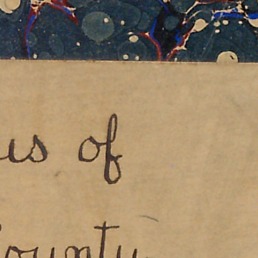 us of
ounty